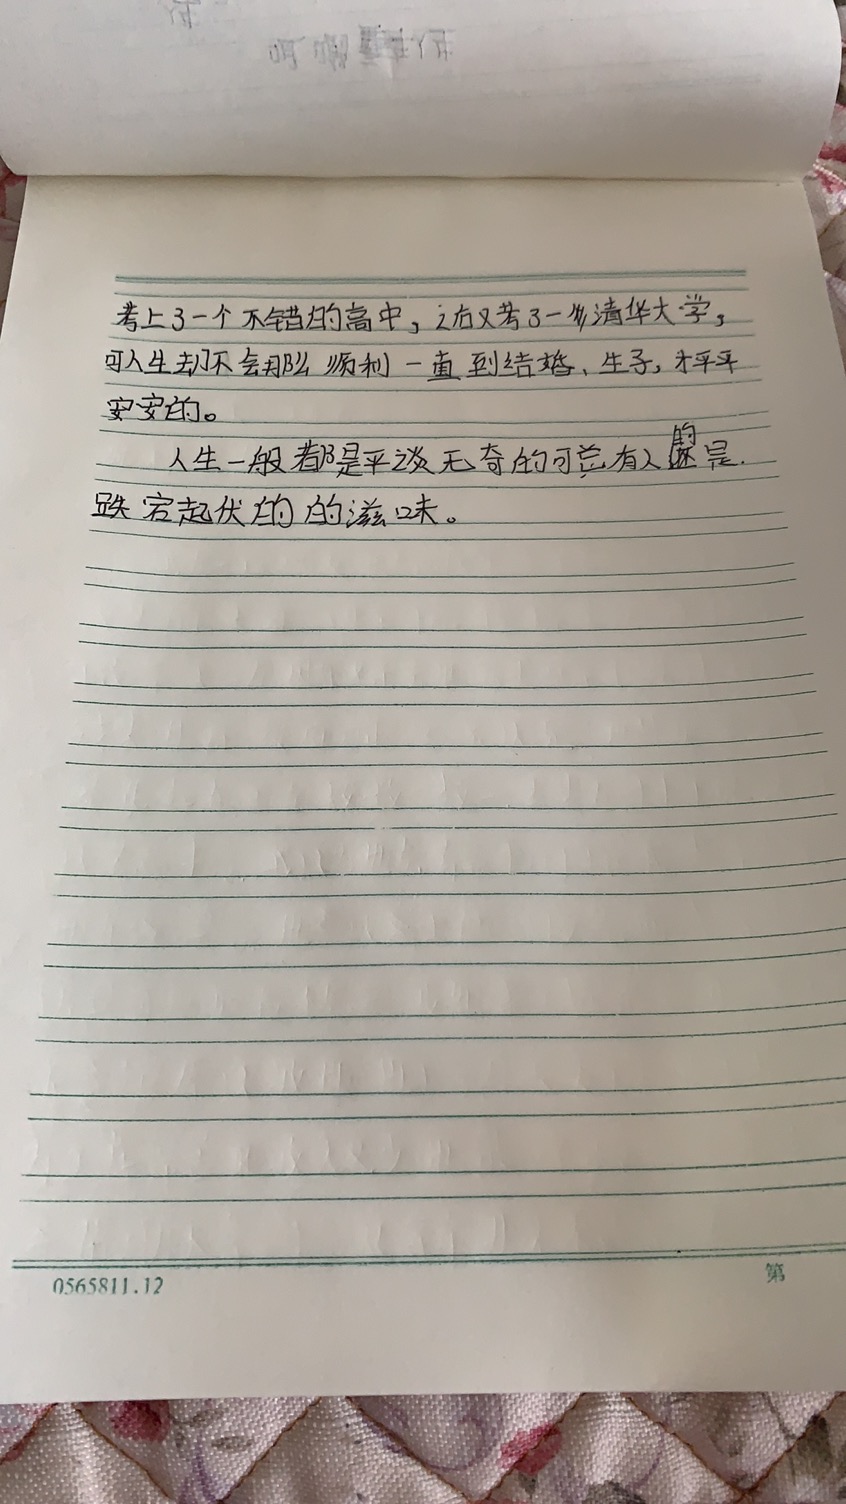 考上了一个不错的高中,之后又考了一步清华大学,
可人生却不会那么顺利一直到结婚、生子,才平平
安安的。
人生一般都是平淡无奇的可总有人的是
跌宕起伏的的滋味。
0565811.12
第